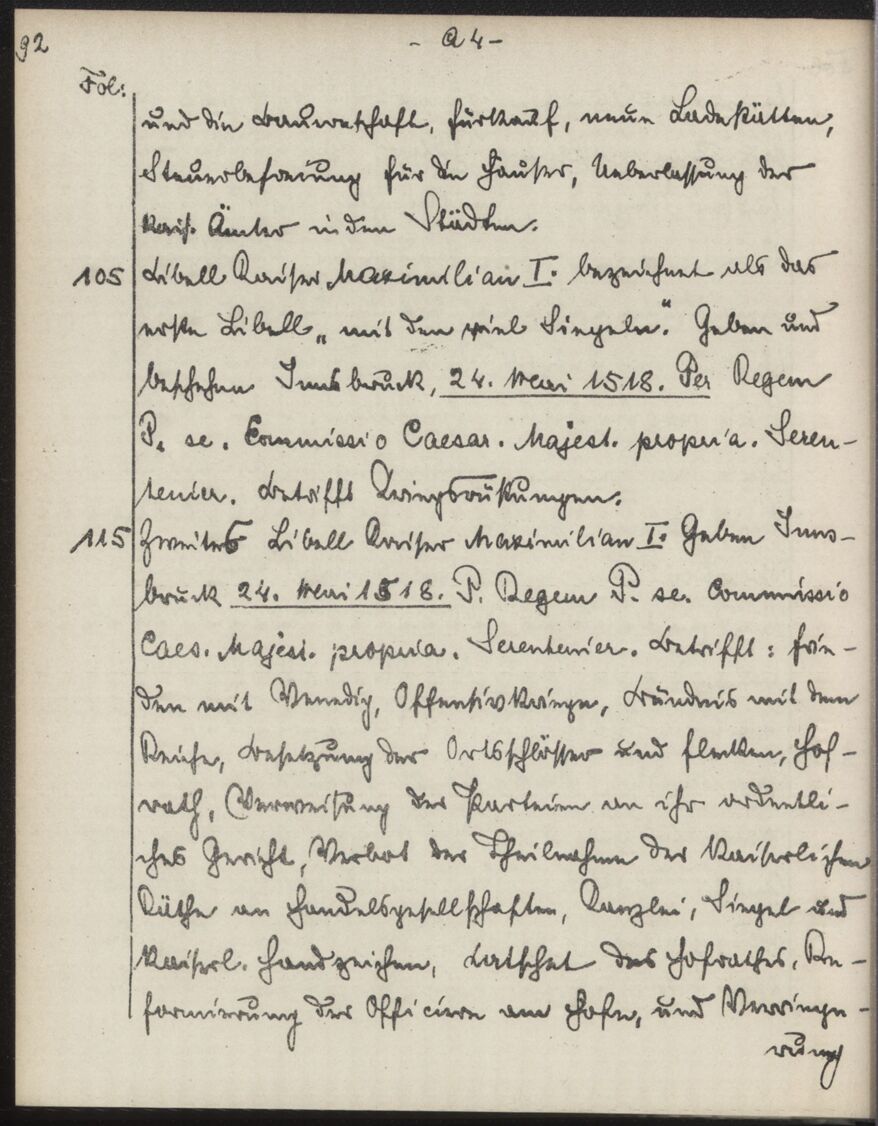 92
- A 4 -
Fol:
und die Bauerschaft, Fürkauf, neue Ladestätten,
Steuerbefreiung für die Häuser, Ueberlassung der
kais. Ämter in den Städten.
105 Libell Kaiser Maximilian I. bezeichnet als das
erste Libell „mit den viel Siegeln". Geben und
beschehen Innsbruck, 24. Mai 1518. Per Regem
P. se. Commissio Caesar. Majest. propria. Seren-
tenier. Betrifft Kriegsrüstungen.
115 Zweites Libell Kaiser Maximilian I. Geben Inns-
bruck 24. Mai 1518. P. Regem P. se. Commissio
Caes. Majest. propria. Serentenier. Betrifft: Frie-
den mit Venedig, Offensivkriege, Bündnis mit dem
Reiche, Besetzung der Ortsschlösser und Flecken, Hof-
rath, (Verweisung der Parteien an ihr ordentli-
ches Gericht, Verbot der Theilnahme der kaiserlichen
Räthe an Handelsgesellschaften, Kanzlei, Siegel und
kaiserl. Handzeichen, des Hofrathes, Re-
formierung der Officiere am Hofe, und Verringe-
rung